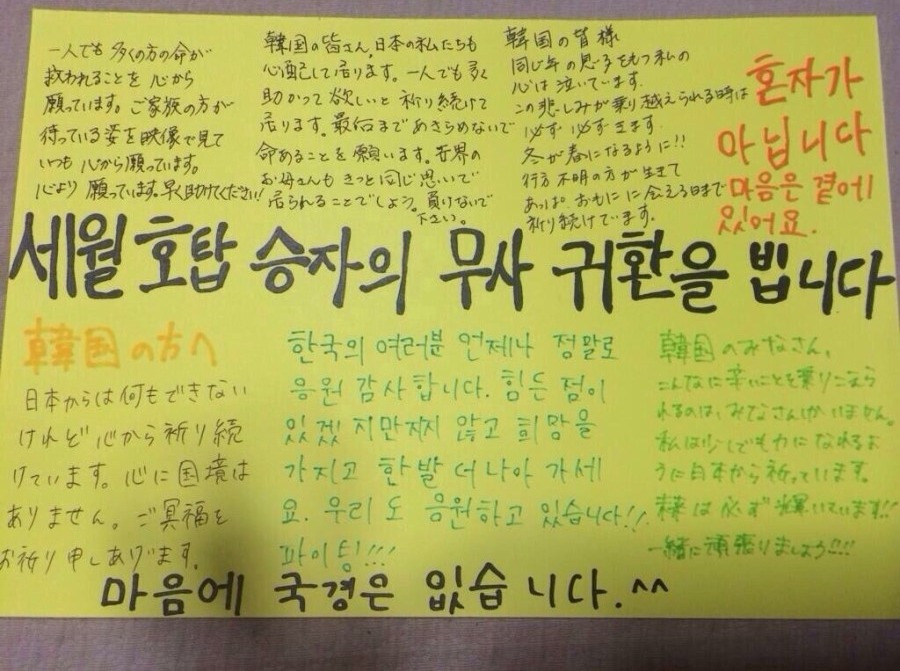 一人でも多くの方の命が
救われることを心から
願っています。ご家族の方が
待っている姿を映像で見て
いつも心から願っています。
心より願っています。早く助けてください!
韓国の皆さん,日本の私たちも
心配して居ります。一人でも多く
助かって欲しいと祈り続けて
居ります。最后まであきらめないで
命あることを願います。世界の
お母さんもきっと同じ思いで
居られることでしょう。負けないで
下さい。
韓国の皆様
同じ年の息子をもつ私の
心は泣いています.
この悲しみが乗り越えられる時は
必ず必ずきます.
冬が春になるように!!
行方不明の方が生きて
あっぱ.おもにに会える日まで
祈り続けています.
혼자가
아닙니다
마음은 곁에
있어요.
세월호탑승자의 무사 귀환을 빕니다
韓国の方へ
日本からは何もできない
けれど心から祈り続
けています。心に国境は
ありません。ご冥福を
お祈り申しあげます.
한국의 여러분 언제나 정말로
응원 감사합니다. 힘든 점이
있겠지만지지 않고 희망을
가지고 한발 더 나아 가세
요. 우리도 응원하고 있습니다!!
파이팅!!!
韓国のみなさん,
こんなに辛いことを乗りこえら
れるのは、みなさんしかいません。
私は少しでも力になれるよ
うに日本から祈っています。
未来は必ず輝いています!!
一緒に頑張りましょう!!!!
마음에 국경은 없습니다.^^